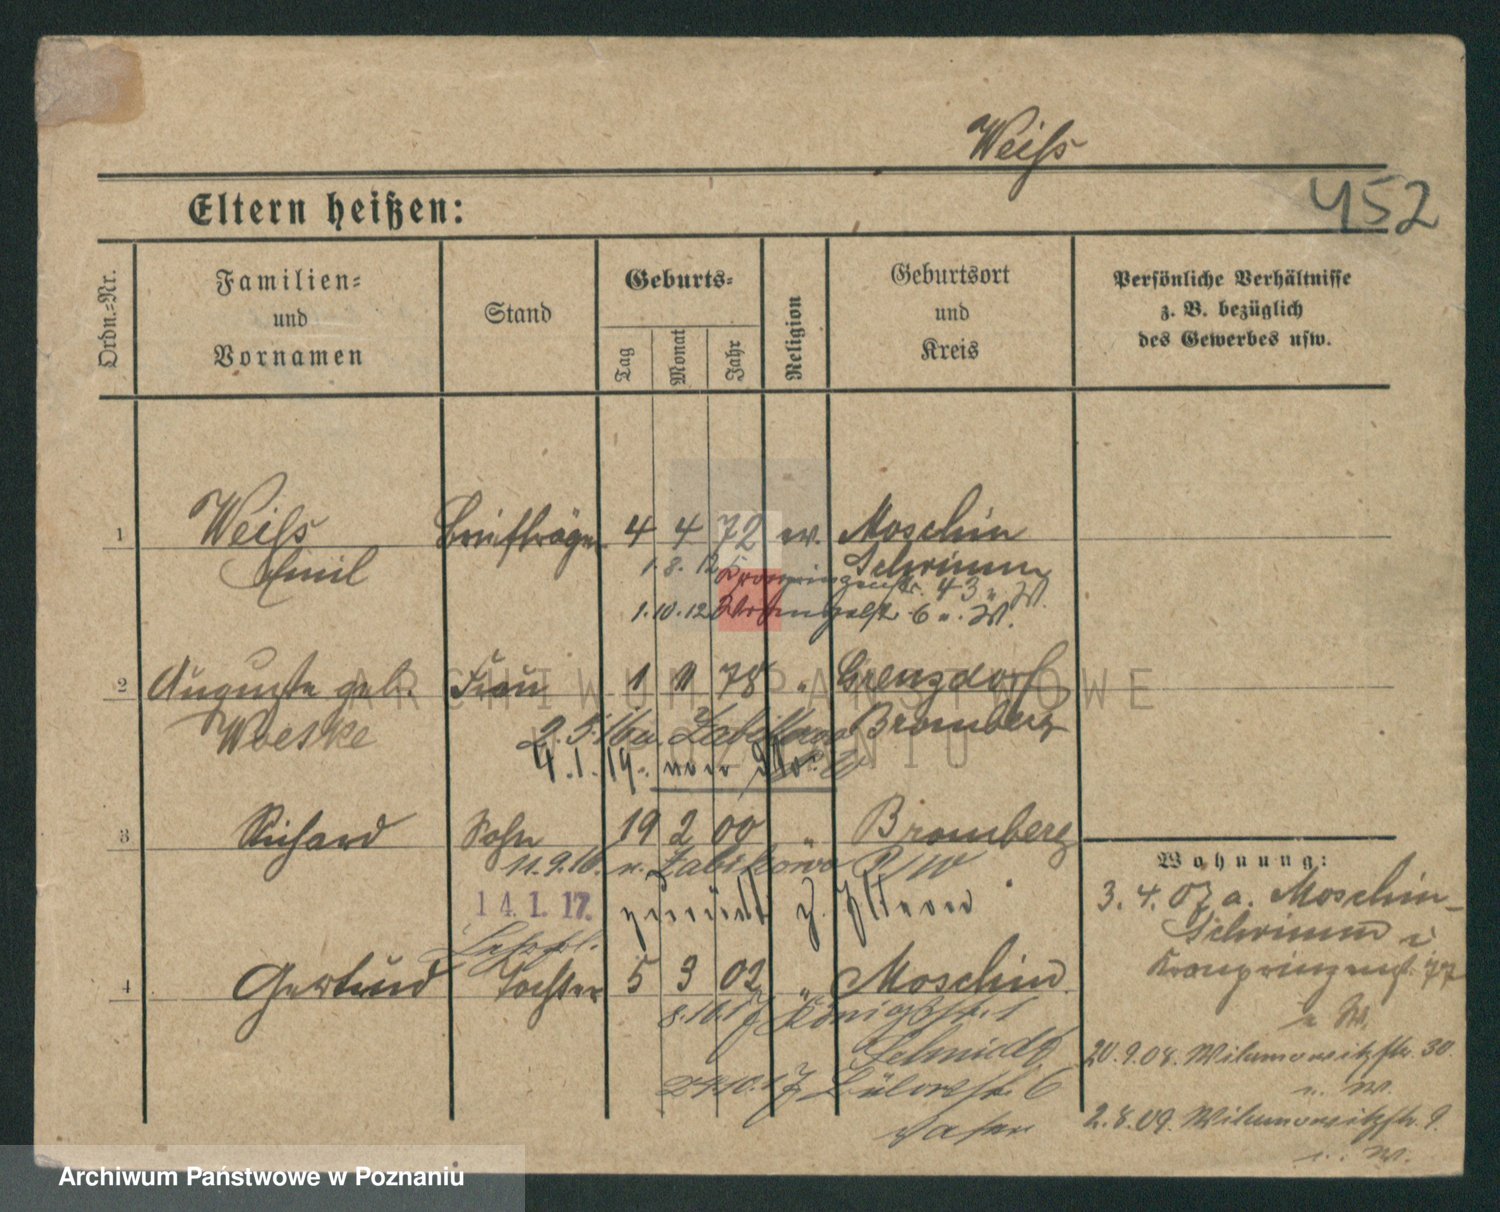 Weiß
452
Eltern heißen:
Ordn.-Nr.
Familien-
und
Vornamen
Stand
Geburts-
Tag
Monat
Jahr
Religion
Geburtsort
und
Kreis
Persönliche Verhältnisse
z. B. bezüglich
des Gewerbes usw.
1 Weiß Briefträger 4 4 72 ev. Moschin
Emil Schrimm
1.8.12 Kronprinzenstr. 43 u. W.
1.10.12 Wrangelstr. 6 u. W.
2 Auguste geb. Frau 1 11 78 " Grenzdorf
Woelke Bromberg
2.5.16 u. Zabikowo
4.1.19.
3 Richard Sohn 19 2 00 " Bromberg
11.9.16. n. Zabikowo P/W
14.1.17. zurück z. Eltern
4 Gertrud Tochter 5 3 02 " Moschin
8.10.17 Königstr. 1
Schmidt
24.10.17 Bülowstr. 6
Vater
Wohnung:
3. 4. 07 a. Moschin-
Schrimm i
Kronprinzenst. 77
u. W.
20.9.08. Wilamowitzstr. 30.
u. W.
2.8.09. Wilamowitzstr. 9.
u. W.
ARCHIWUM PAŃSTWOWE
W POZNANIU
Archiwum Państwowe w Poznaniu